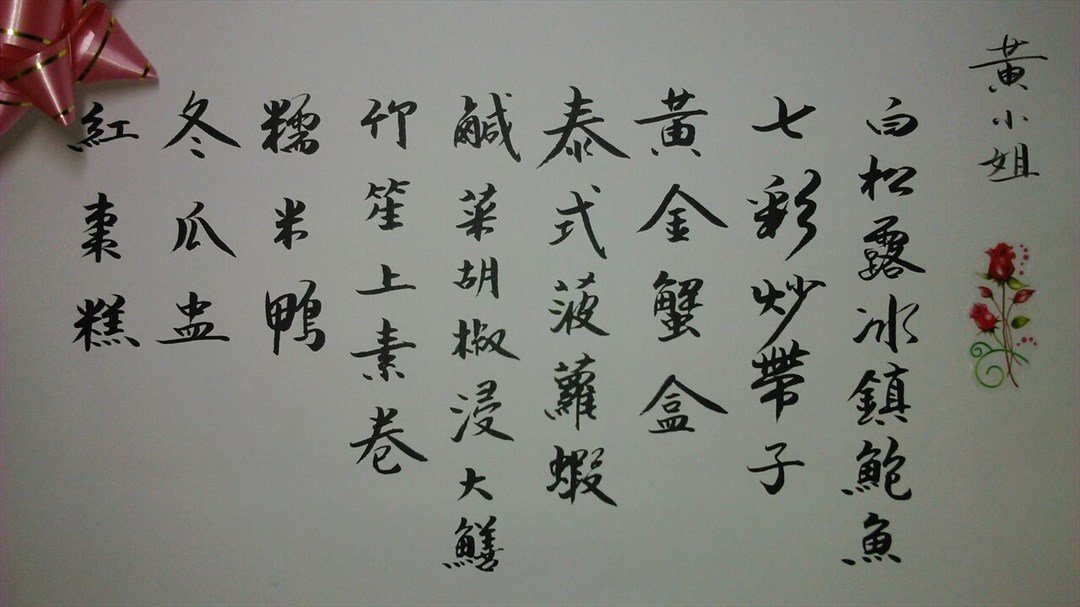 黃小姐
白松露冰鎮鮑魚
七彩炒帶子
黃金蟹盒
泰式菠蘿蝦
鹹菜胡椒浸大鱔
竹笙上素卷
糯米鴨
冬瓜盅
紅棗糕